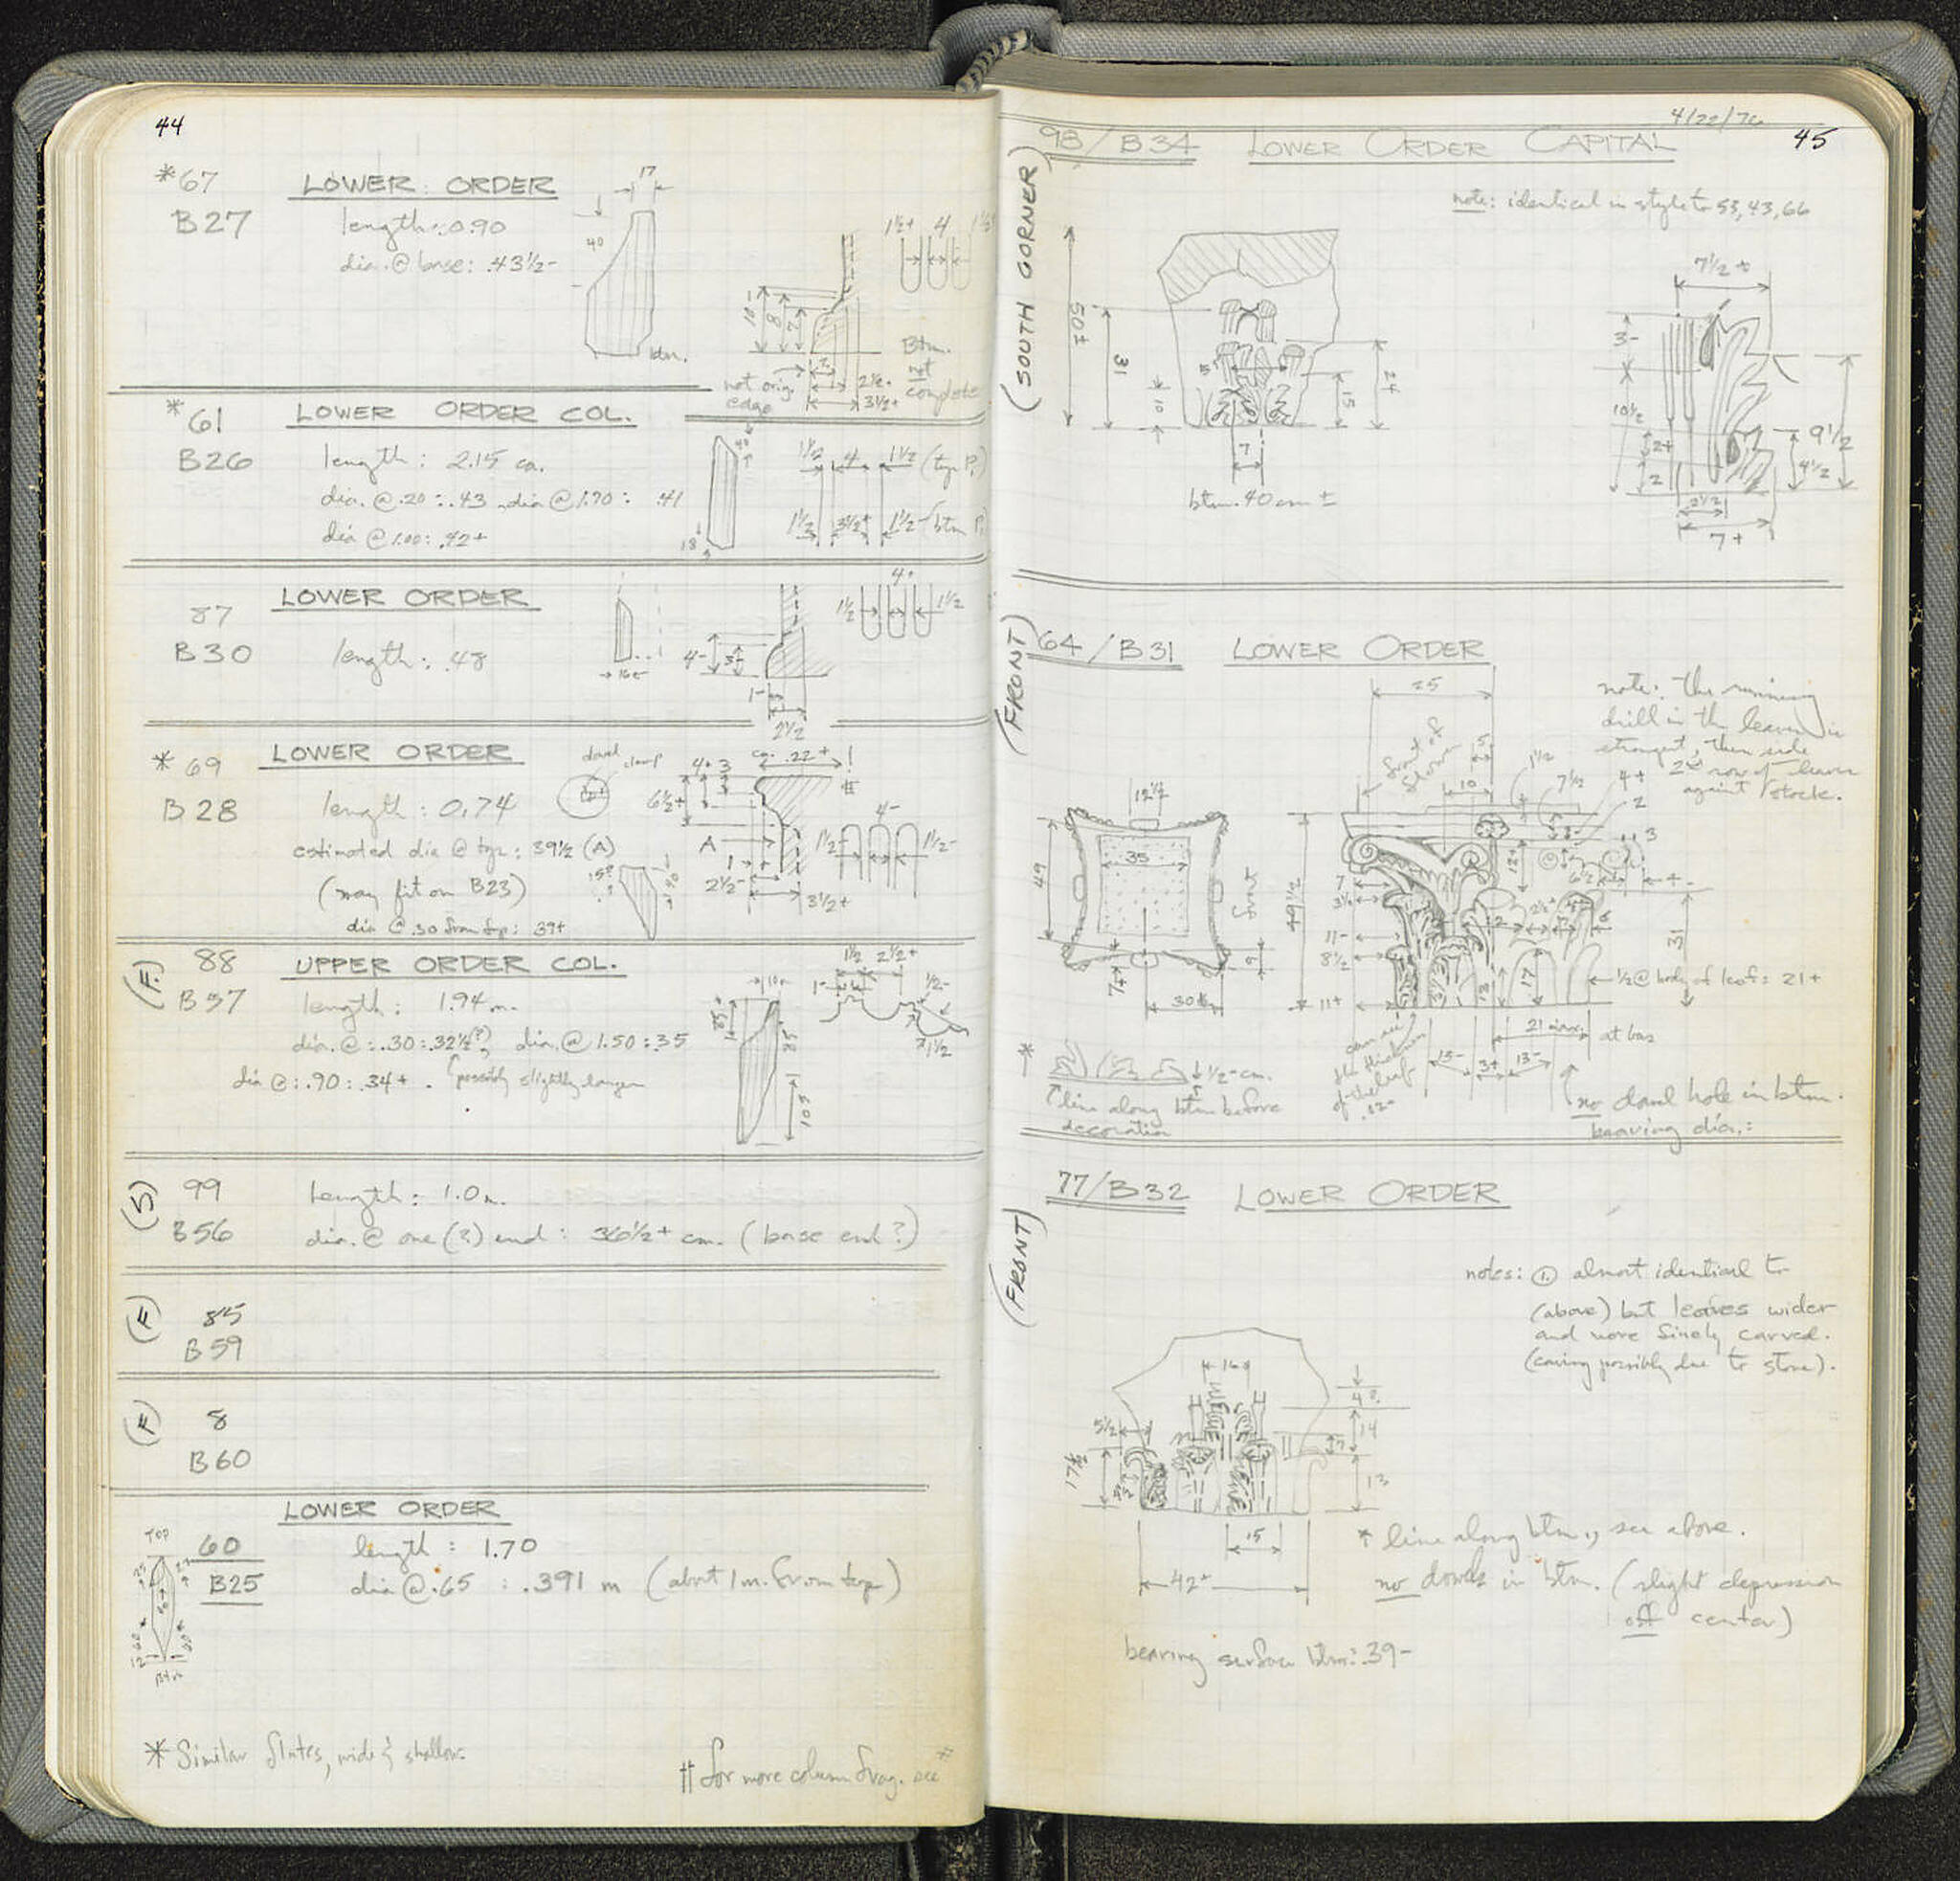 44
*67
LOWER ORDER
B27
length: 0.90
dia. @ base: .43½-
17
40
btm.
1½+ 4 1½
10-
8
7
2½-
3½+
not orig. edge
Btm. not complete
*61
LOWER ORDER COL.
B26
length: 2.15 ca.
dia. @ .20: .43 dia @ 1.70: .41
dia @ 1.00: .42+
40
18
1½ 4 1½ (top
1½ 3½+ 1½- (btm
87
LOWER ORDER
B30
length: .48
16
4- 3-
1-
2½
4+
1½ 1½
*69
LOWER ORDER
B28
length: 0.74
estimated dia @ top: 39½ (A)
(may fit on B23)
dia @ .30 from top: 39+
dowel clamp
4+ 3
ca. .22+ !
6½+
A
1
2½-
3½+
4-
1½- 1½-
(F.)
88
UPPER ORDER COL.
B57
length: 1.94 m.
dia. @: .30: .32½(?), dia. @ 1.50: .35
dia @: .90: .34+ . (possibly slightly larger
1½ 2½+
1-
½-
1½
58
105
(S)
99
length: 1.0 m.
B56
dia. @ one (?) end: 36½+ cm. (base end?)
(F)
85
B59
(F)
8
B60
LOWER ORDER
TOP
60
length: 1.70
B25
dia @ .65 : .391 m (about 1 m. from top)
Btm
* Similar flutes, wide & shallow
†† for more column frag. see
4/22/76
45
98/B34 LOWER ORDER CAPITAL
(SOUTH CORNER)
note: identical in style to 53, 43, 66
50+
31
10
5
15
24
7
btm. 40 cm ±
7½+
3-
10½
2+
2
9½
4½
2½
7+
(FRONT)
64/B31 LOWER ORDER
25
note: the running
drill in the leaves is
strongest, then side
2nd row of leaves
against stock.
front of flower
5
10
1½
7½
4+
2
3
12½
49
35
front
9
7+
30½
49½
7
3½
11-
8½
11+
12+
6½
4-
17
31
½ @ body of leaf: 21+
21 max. at bas
13- 3+ 13-
*
½- cm.
line along btm before
decoration
no dowel hole in btm.
bearing dia.:
77/B32 LOWER ORDER
(FRONT)
notes: ① almost identical to
(above) but leaves wider
and more finely carved.
(carving possibly due to stone).
16
4
14
7
13
5½
17½
15
42+
* line along btm., see above.
no dowels in btm. (slight depression
off center)
bearing surface btm: .39-